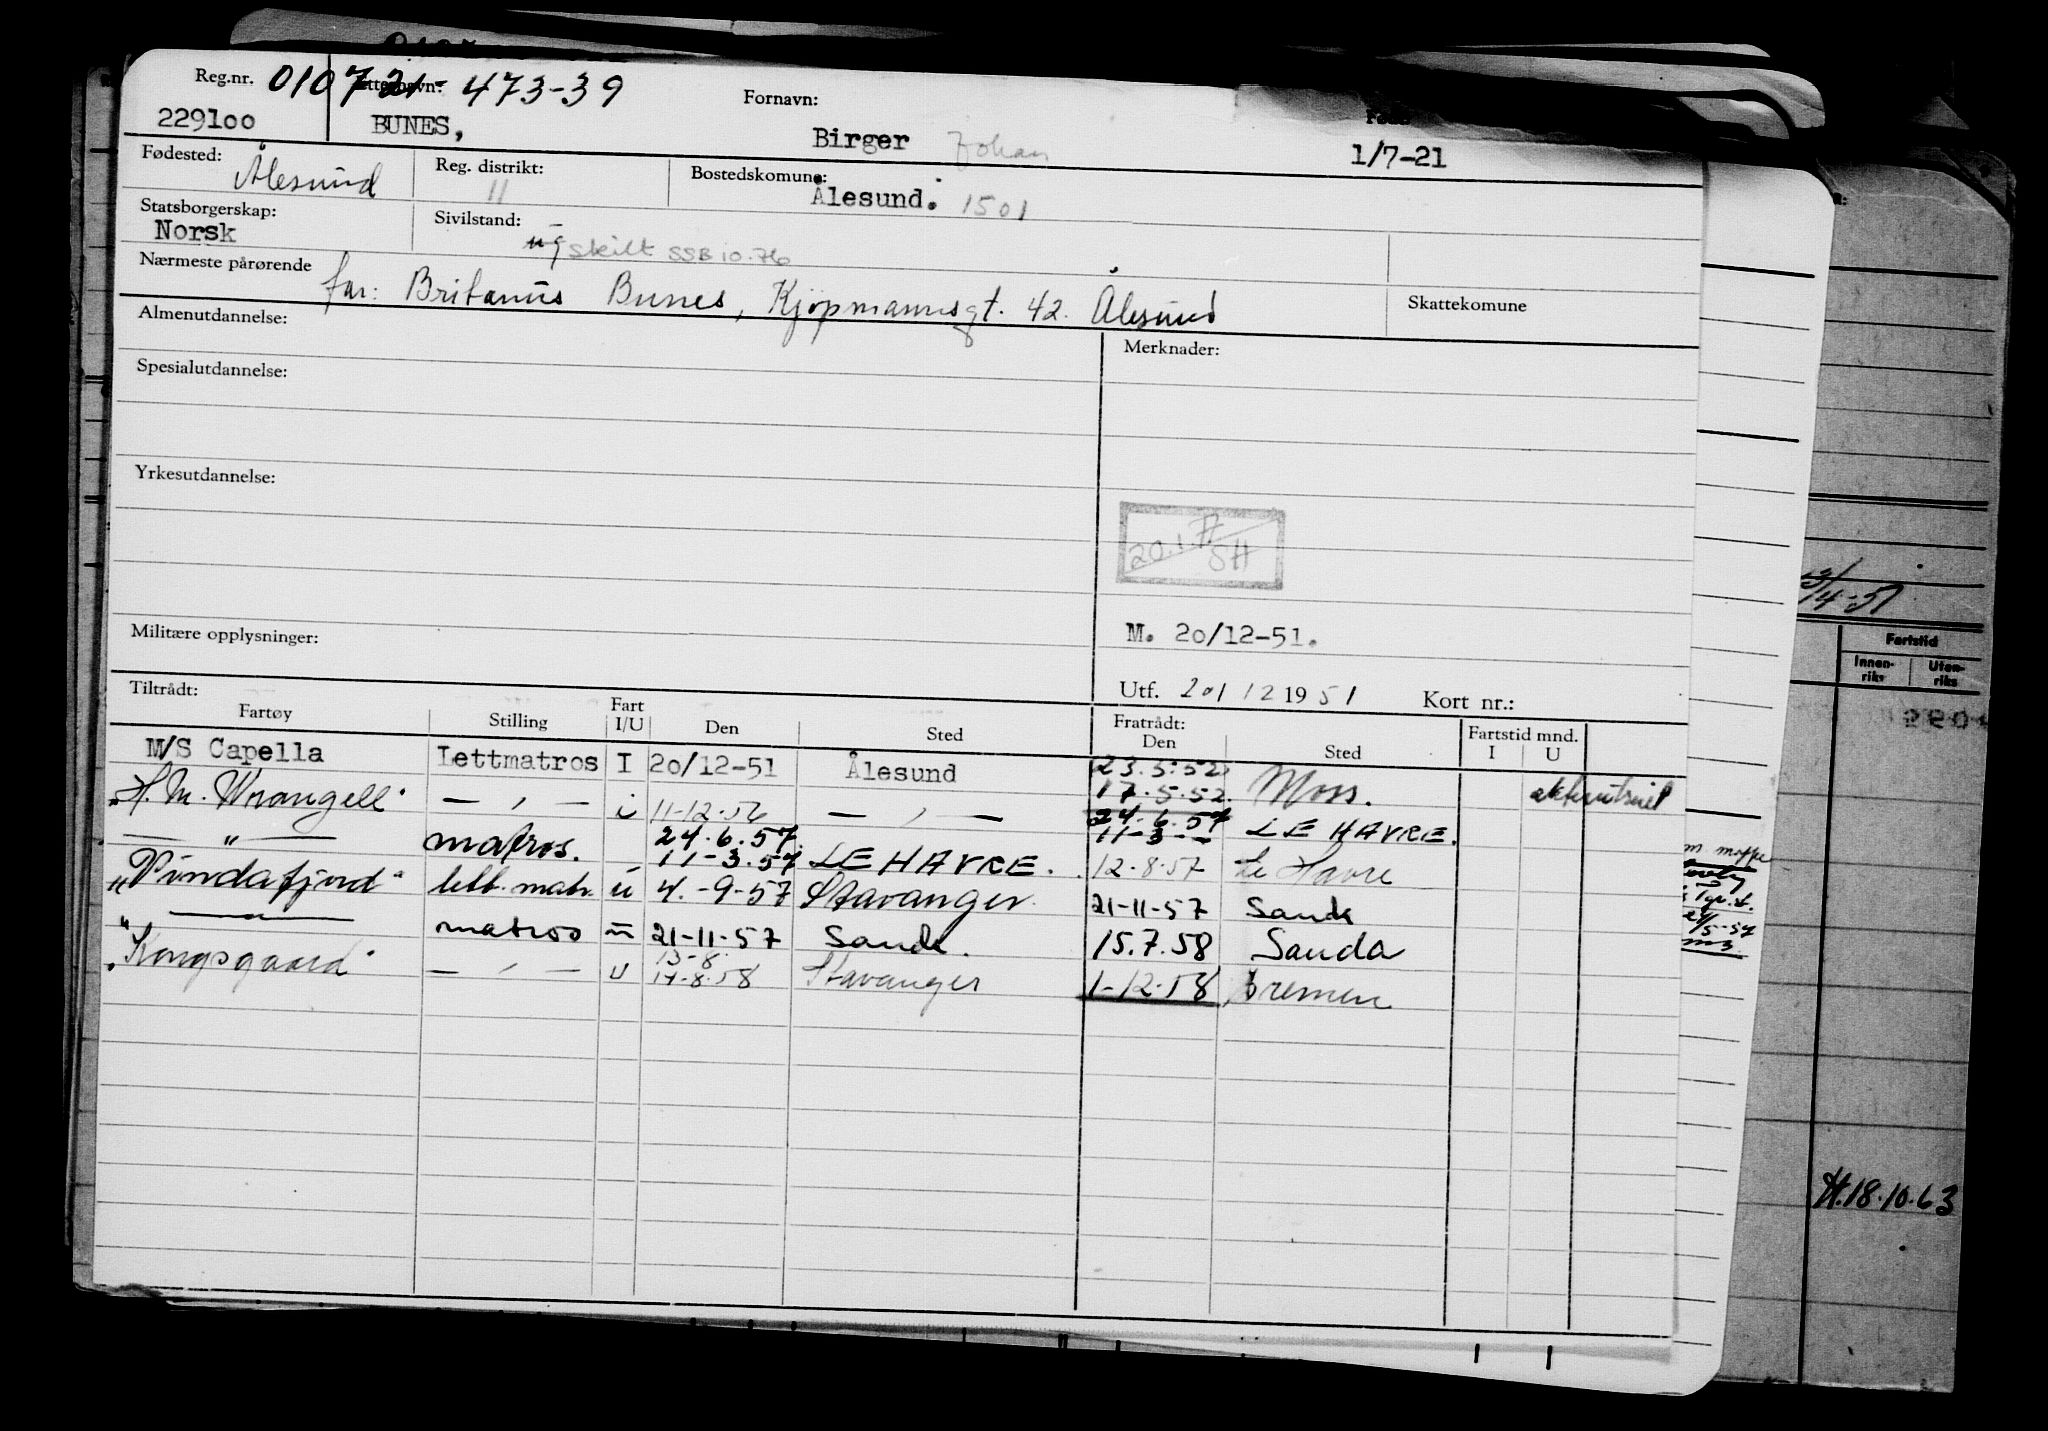 Reg.nr. 010721-473-39 Fornavn:
229100 BUNES, Birger Johan 1/7-21
Fødested: Ålesund Reg. distrikt: 11 Bostedskomune: Ålesund. 1501
Statsborgerskap: Norsk Sivilstand: ug skilt SSB 10.76
Nærmeste pårørende far: Britanus Bunes, Kjøpmannsgt. 42. Ålesund Skattekomune
Almenutdannelse: Merknader:
Spesialutdannelse:
Yrkesutdannelse:
20.1.77 SH
Militære opplysninger: M. 20/12-51.
Tiltrådt: Utf. 20/12 1951 Kort nr.:
Fartøy Stilling Fart I/U Den Sted Fratrådt: Den Sted Fartstid mnd. I U
M/S Capella Lettmatros I 20/12-51 Ålesund 23.5.52 17.5.52. Moss.
"H. M. Wrangell" — , — i 11-12.56 — , — 24.6.57 11-3 - LE HAVRE.
— " — matros. 24.6.57. 11-3.57 LE HAVRE. 12-8-57 Le Havre
"Vindafjord" lett. matr. u 4.-9-57 Stavanger 21-11-57 Sauda
— " — matros " 21-11-57 Sauda. 15.7.58 Sauda
"Kongsgaard" — , — u 13-8. 14-8.58 Stavanger 1-12.58 Bremen
3/4-51
Fartstid
Innen-riks Uten-riks
H.18.10.63